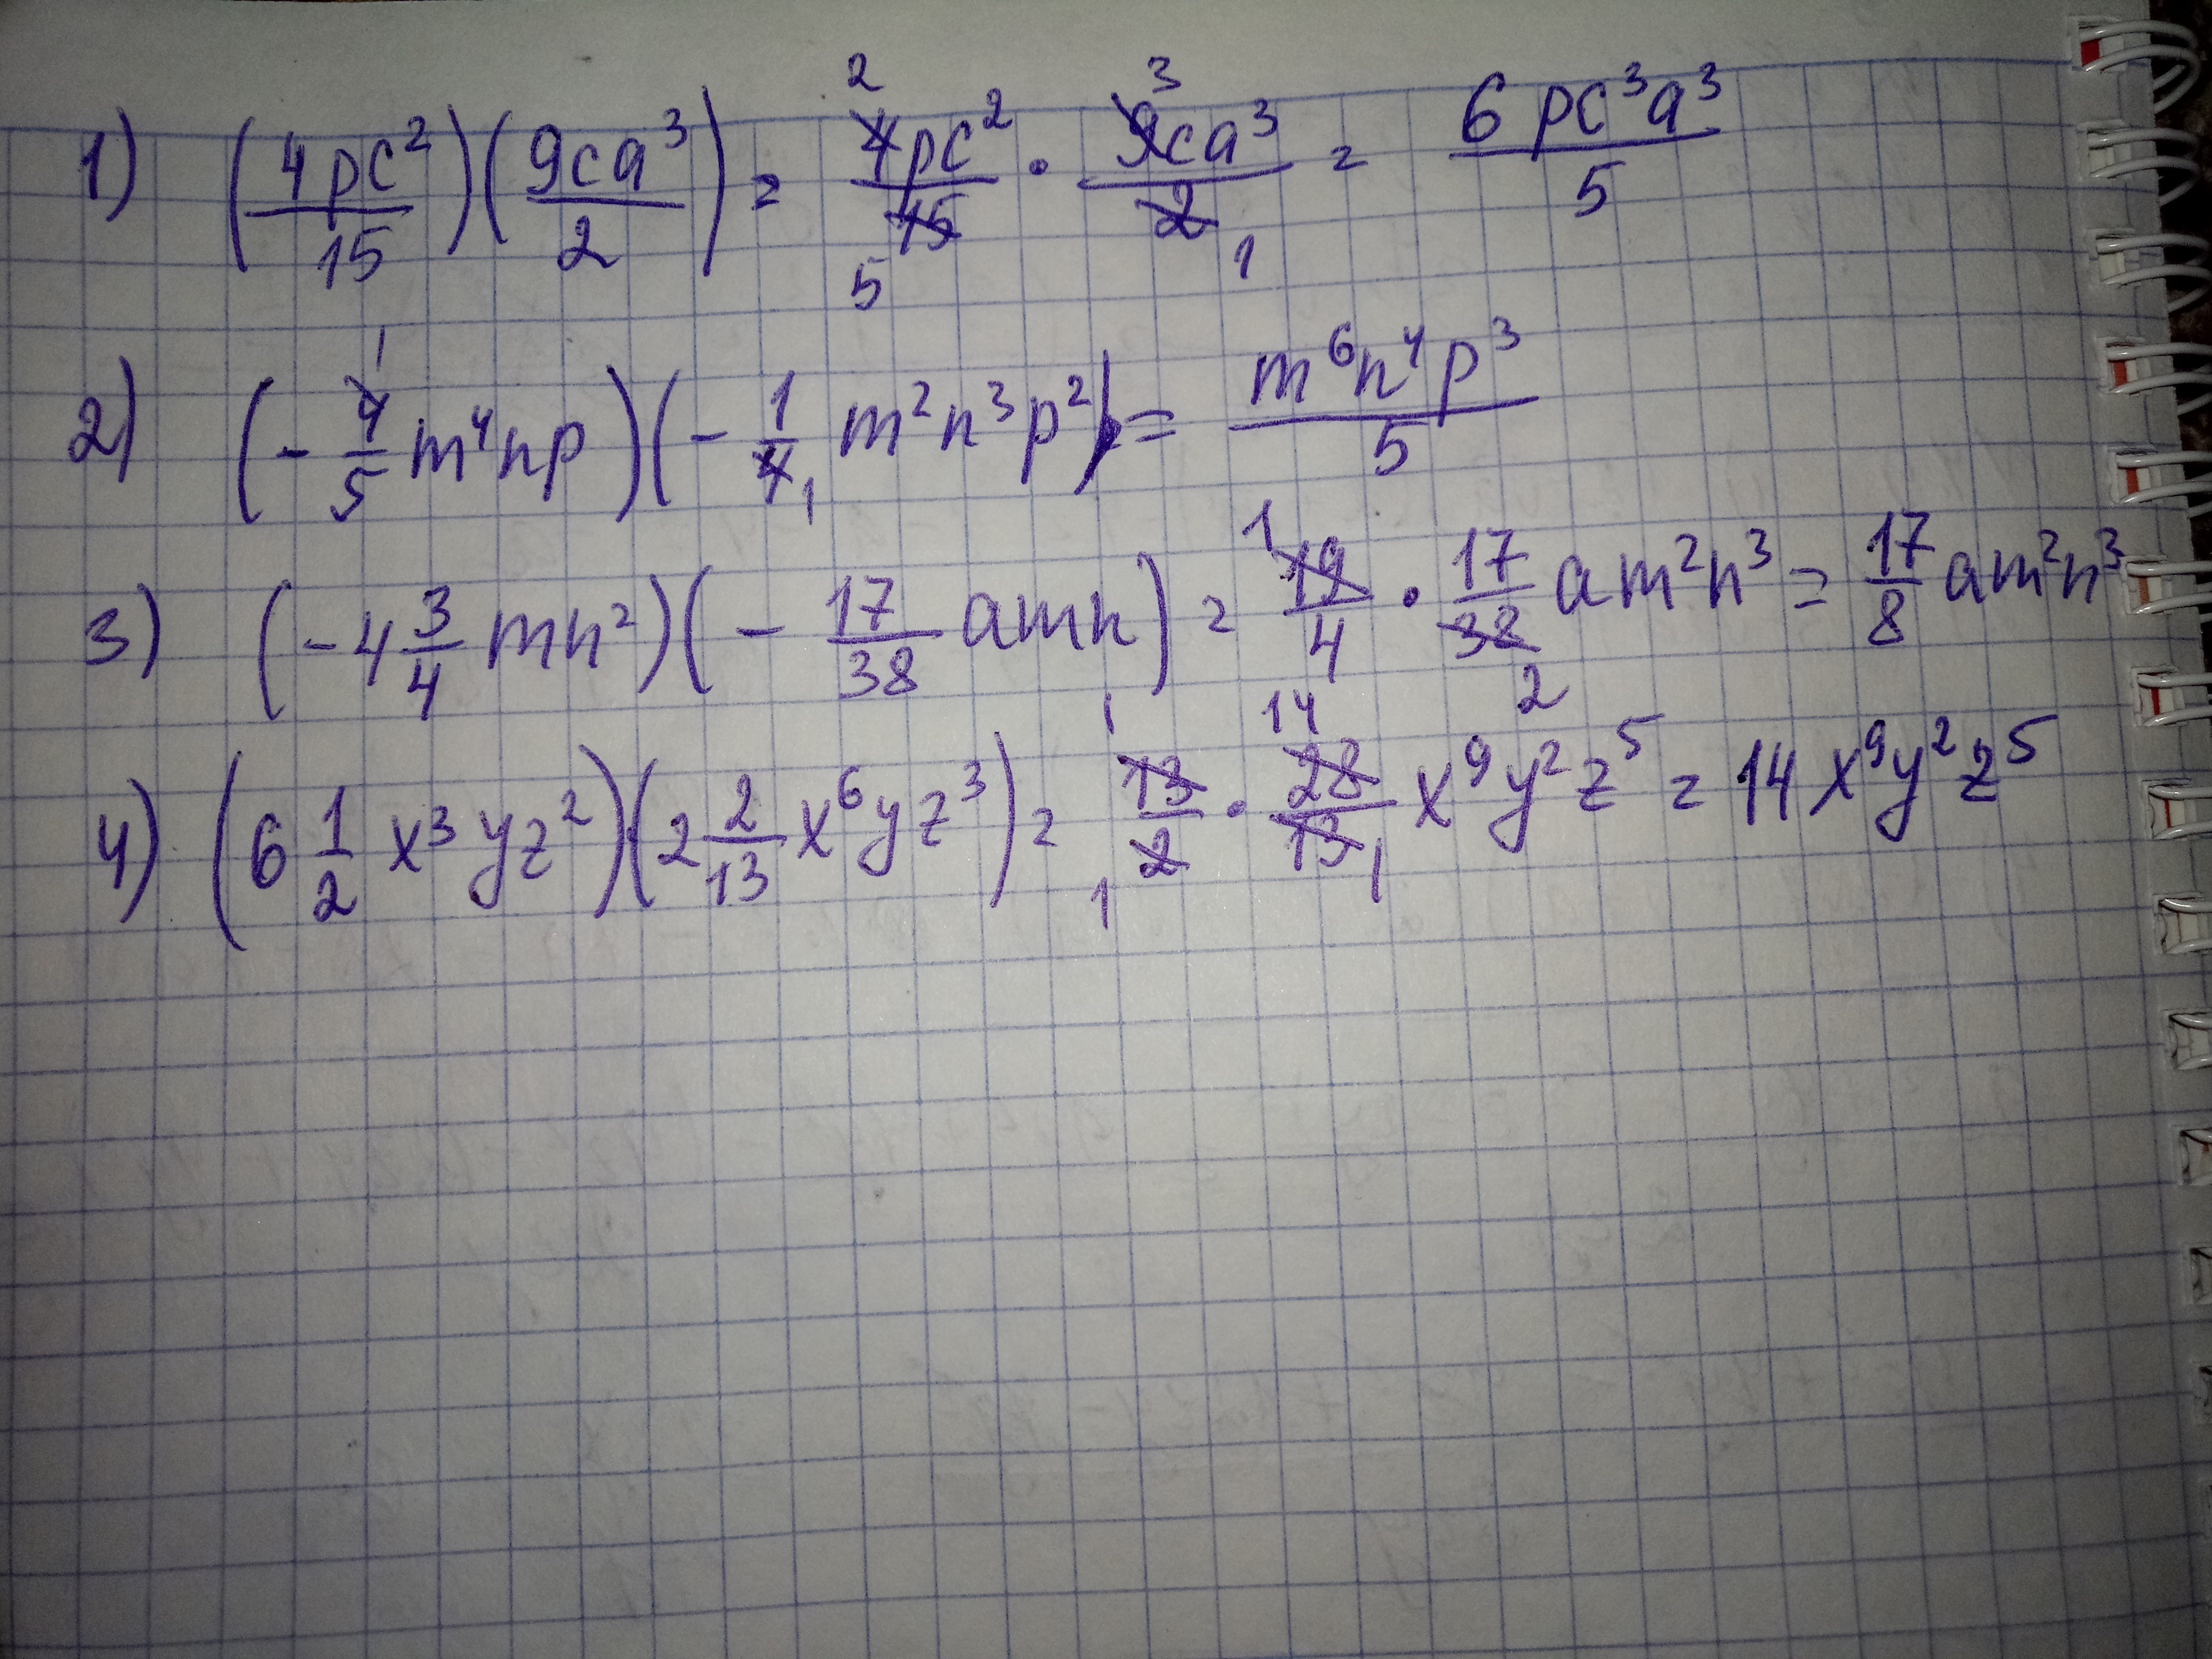 1) (4pc²/15)(9ca³/2) = 4pc²/15 · 9ca³/2 = 6pc³a³/5
2) (-4/5 m⁴np)(-1/4 m²n³p²) = m⁶n⁴p³/5
3) (-4 3/4 mn²)(-17/38 amn) = 19/4 · 17/38 am²n³ = 17/8 am²n³
4) (6 1/2 x³yz²)(2 2/13 x⁶yz³) = 13/2 · 28/13 x⁹y²z⁵ = 14x⁹y²z⁵